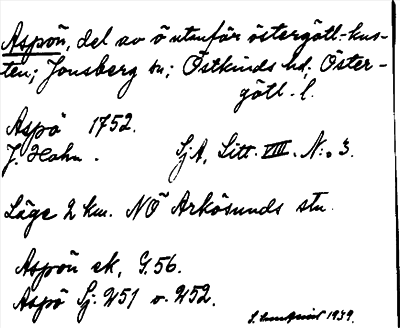 Aspön, del av ö utanför östergötl.-kus-
ten; Jonsberg sn; Östkinds hd, Öster-
götl. l.
Aspö 1752.
J. Hahn. SjA, Litt. VIII. N:o 3.
Läge 2 km. NÖ Arkösunds stn.
Aspön ek, G.56.
Aspö Sj. 251 o. 252.
1939.